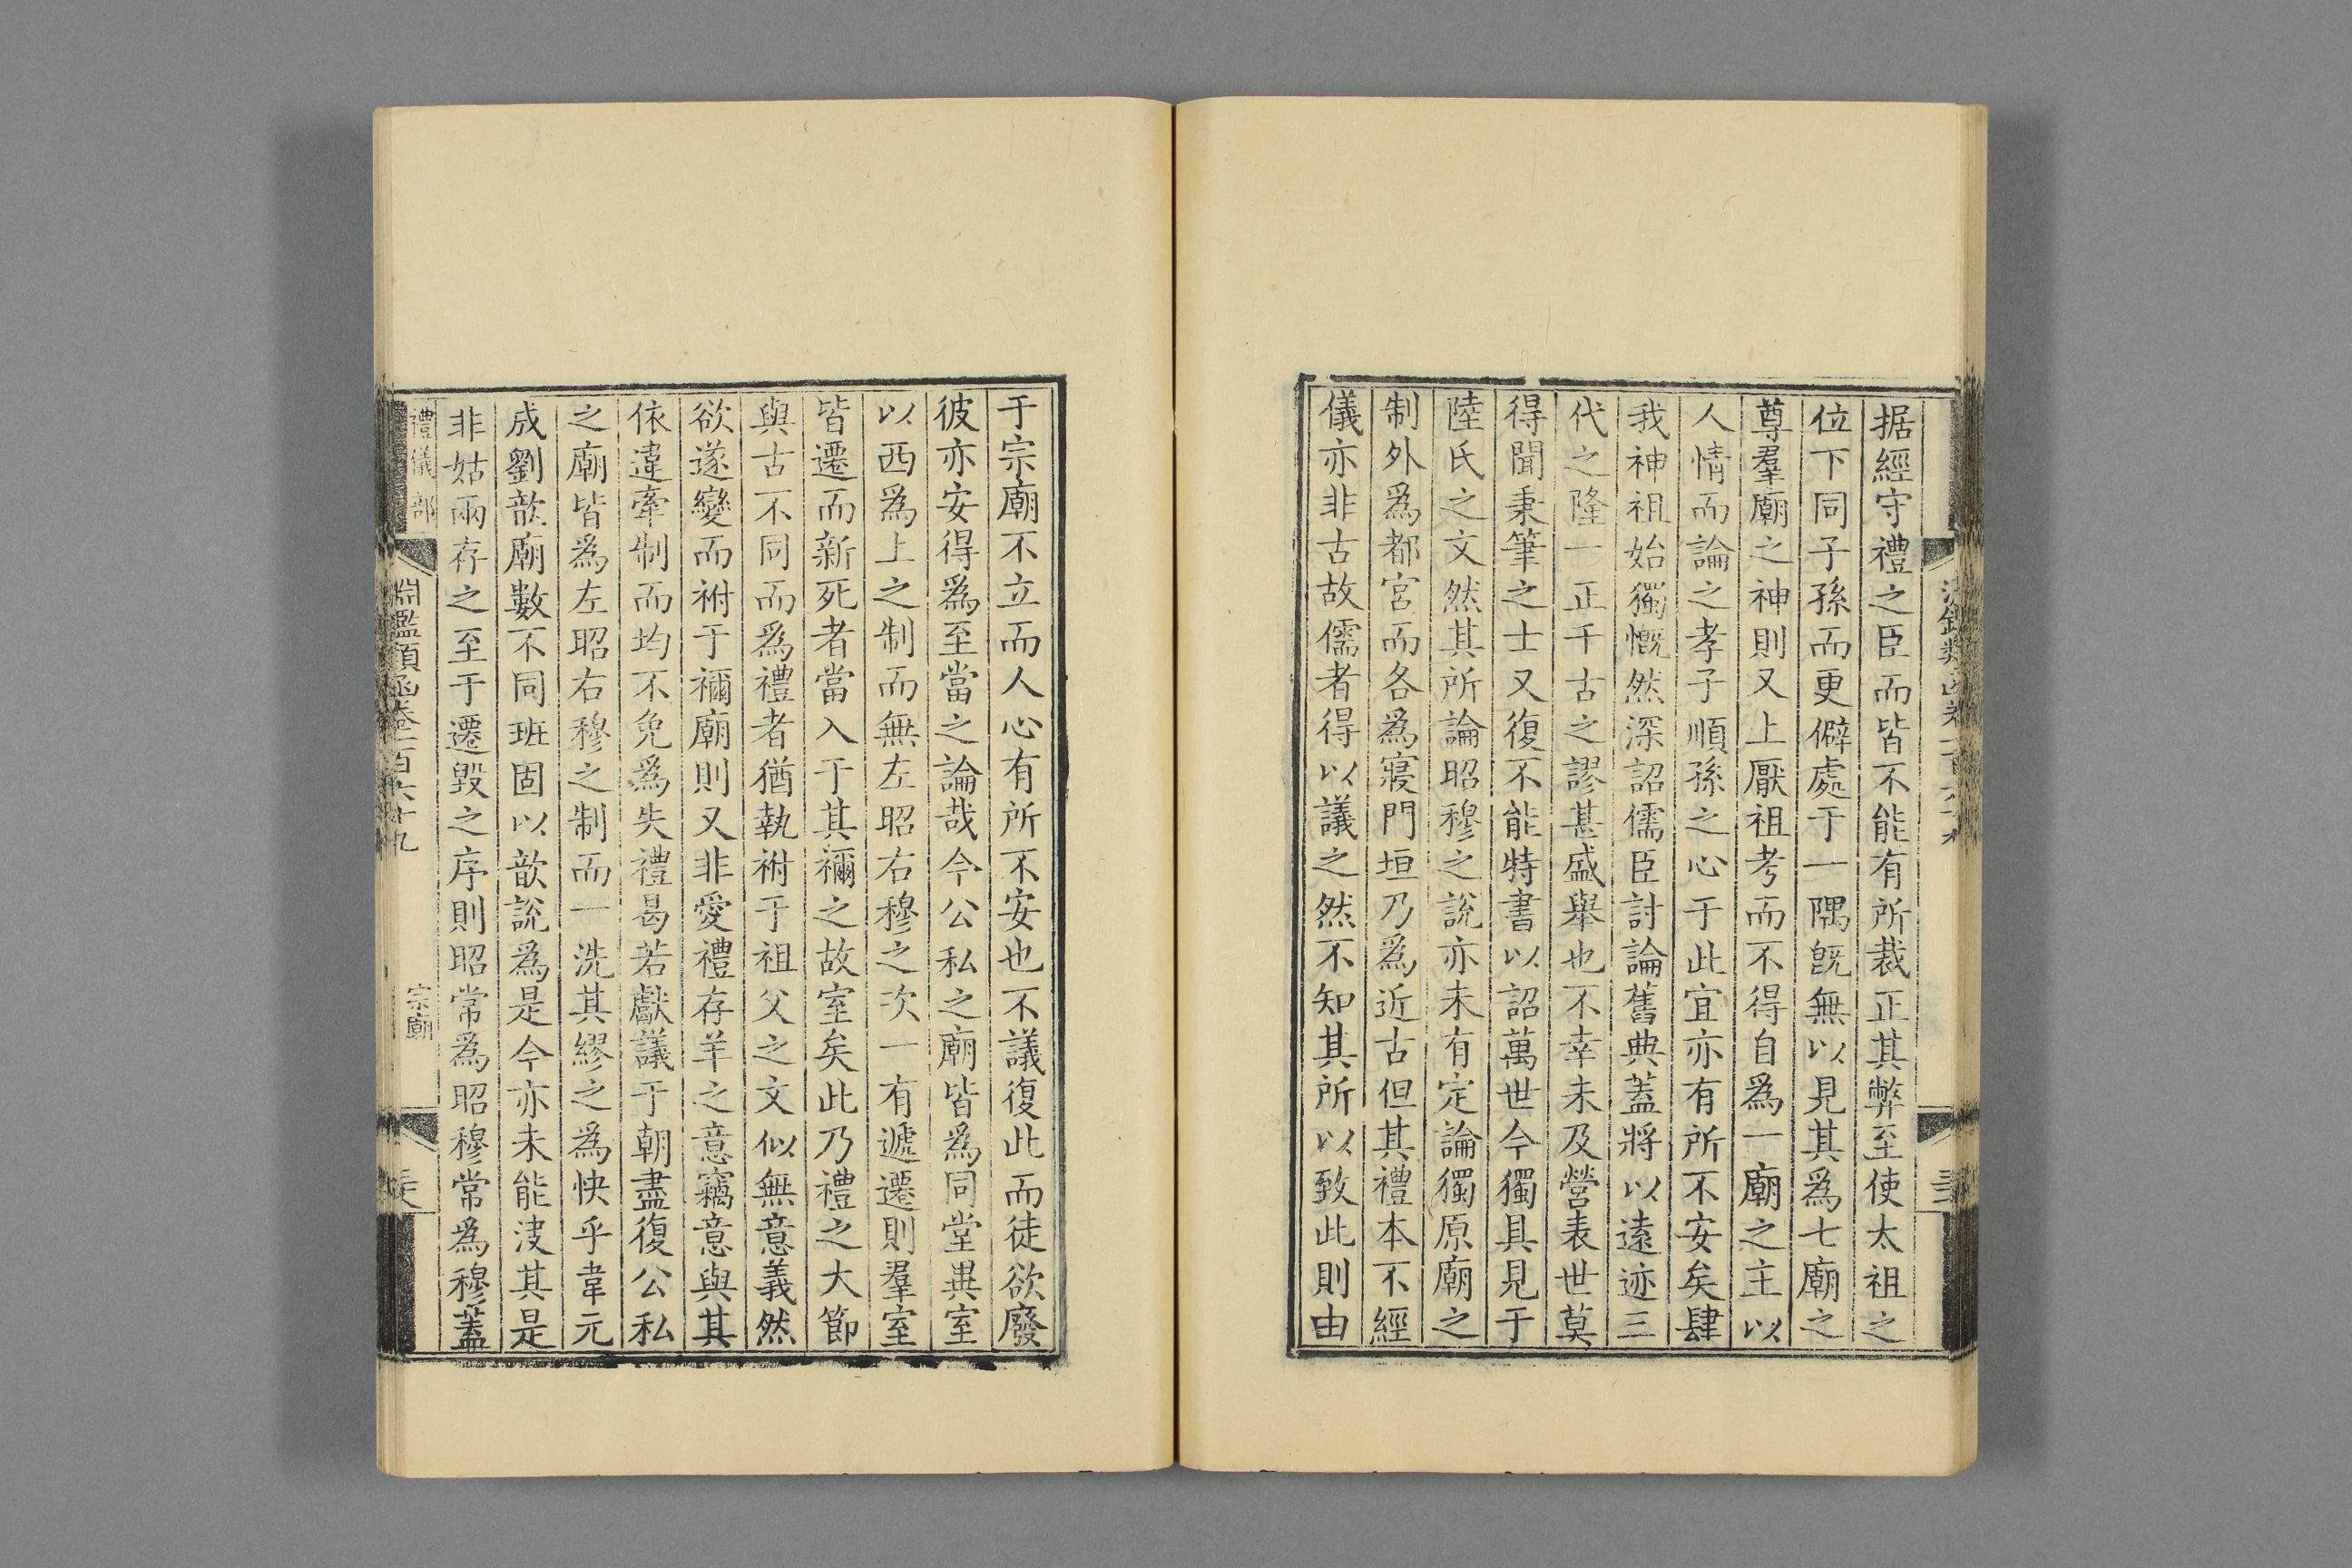 据經守禮之臣而皆不能有所裁正其弊至使太祖之
位下同子孫而更僻處于一隅旣無以見其爲七廟之
尊羣廟之神則又上厭祖考而不得自爲一廟之主以
人情而論之孝子順孫之心于此宜亦有所不安矣肆
我神祖始獨慨然深詔儒臣討論舊典蓋將以遠迹三
代之隆一正千古之謬甚盛舉也不幸未及營表世莫
得聞秉筆之士又復不能特書以詔萬世今獨具見于
陸氏之文然其所論昭穆之說亦未有定論獨原廟之
制外爲都宮而各爲寢門垣乃爲近古但其禮本不經
儀亦非古故儒者得以議之然不知其所以致此則由
于宗廟不立而人心有所不安也不議復此而徒欲廢
彼亦安得爲至當之論哉今公私之廟皆爲同堂異室
以西爲上之制而無左昭右穆之次一有遞遷則羣室
皆遷而新死者當入于其禰之故室矣此乃禮之大節
與古不同而爲禮者猶執祔于祖父之文似無意義然
欲遂變而祔于禰廟則又非愛禮存羊之意竊意與其
依違牽制而均不免爲失禮曷若獻議于朝盡復公私
之廟皆爲左昭右穆之制而一洗其繆之爲快乎韋元
成劉歆廟數不同班固以歆說爲是今亦未能決其是
非姑兩存之至于遷毀之序則昭常爲昭穆常爲穆蓋
禮儀部
淵鑑類函卷一百六十九
宗廟